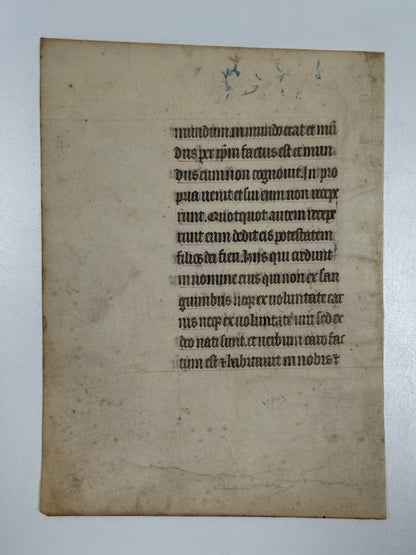 mundum. in mundo erat et mū
dus per ip̄m factus est et mun
dus eum non cognouit. In pro
pria uenit et sui eum non recepe
runt. Quotquot autem recepe
runt eum dedit eis potestatem
filios dei fieri. hiis qui credunt
in nomine eius qui non ex san
guinibus neqꝫ ex uoluntate car
nis neqꝫ ex uoluntate uiri sed ex
deo nati sunt. et uerbum caro fac
tum est ⁊ habitauit in nobis ⁊